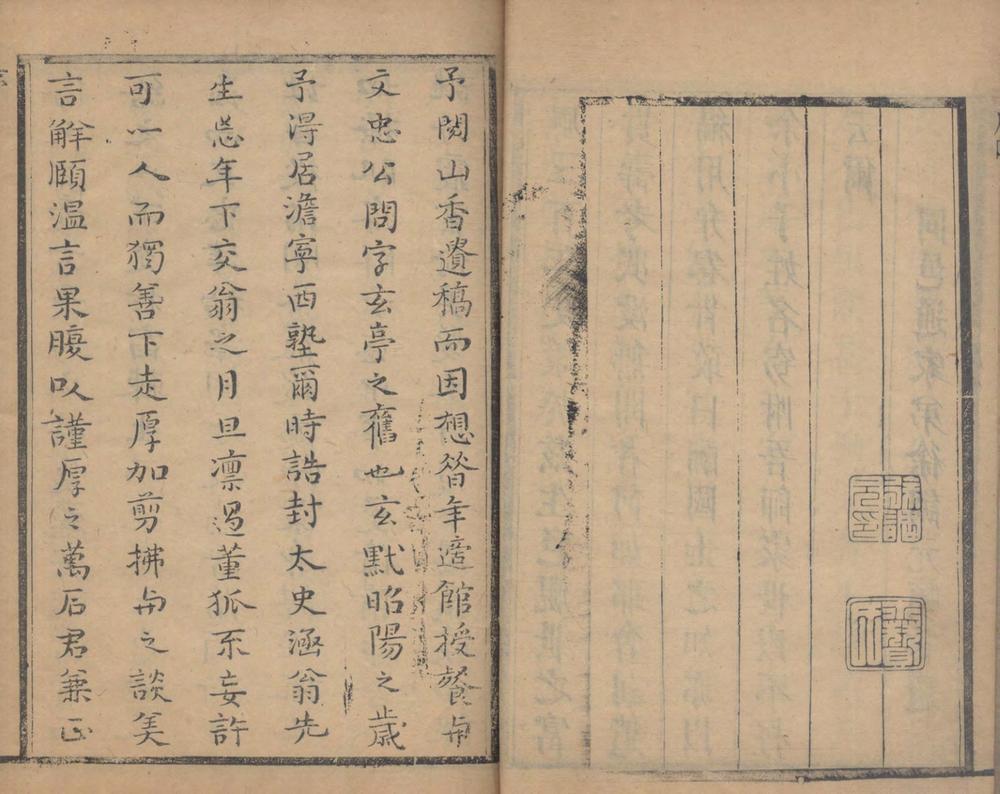 予閱山香遺稿而因想昔年適館授餐与
文忠公問字玄亭之舊也玄默昭陽之歲
予得居澹寧西塾爾時誥封太史涵翁先
生忘年下交翁之月旦凛過董狐不妄許
可一人而獨善下走厚加剪拂与之談美
言解頤温言果腹以謹厚之萬石君兼正